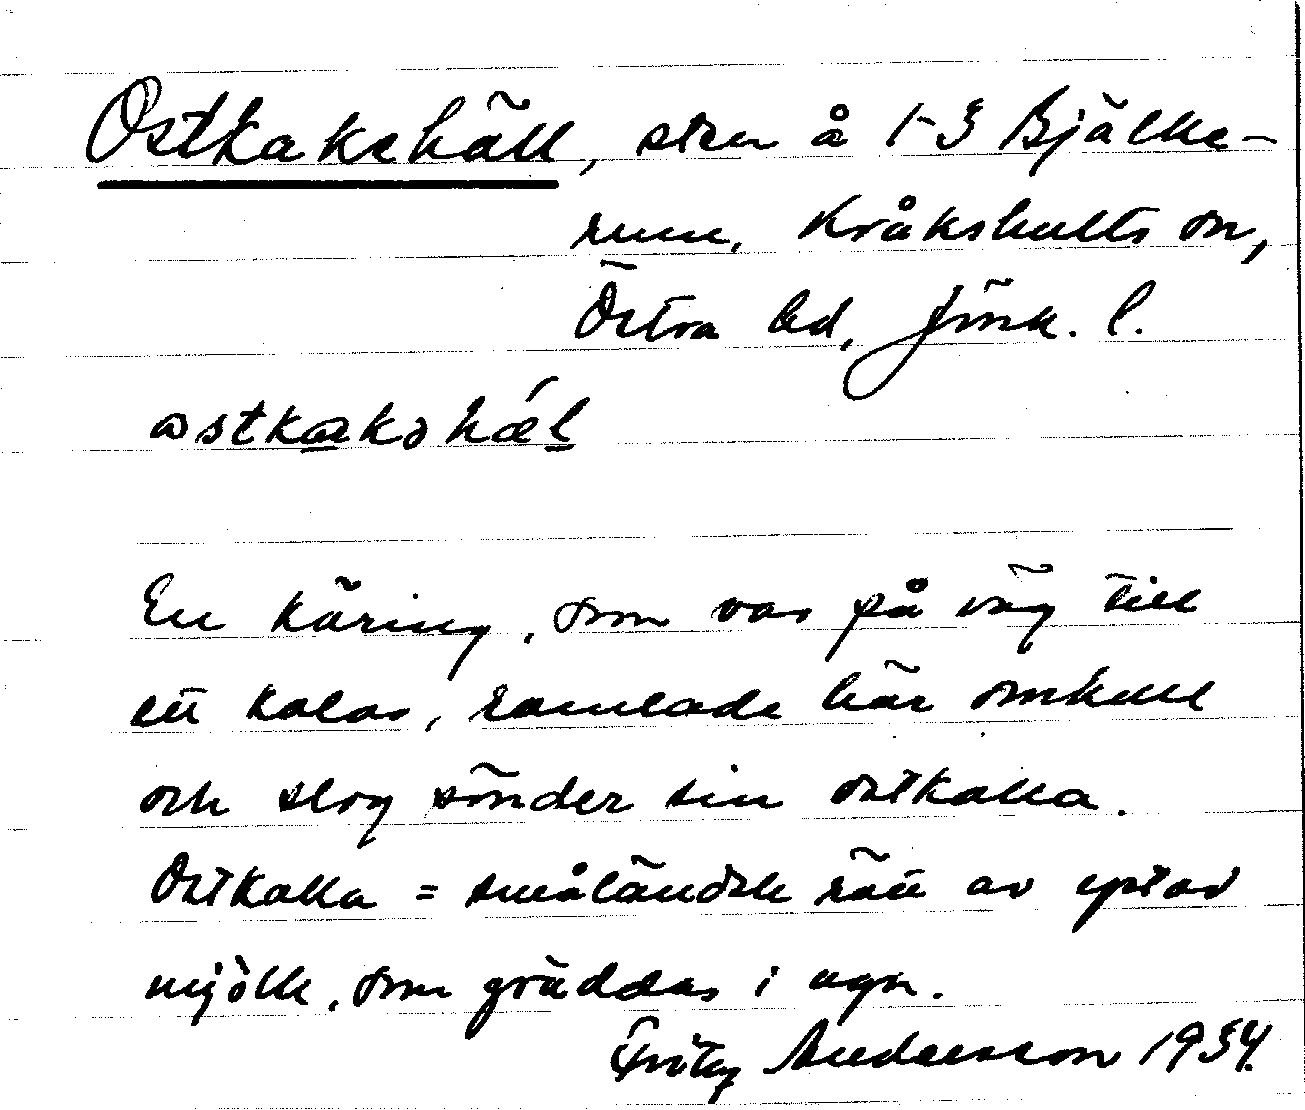 Ostkakehäll, sten å 1-3 Bjälke-
rum, Kråkshults sn,
Östra hd, Jönk. l.
ostkakəhǽl
En käring, som var på väg till
ett kalas, ramlade här omkull
och slog sönder sin ostkaka.
Ostkaka = småländsk rätt av ystad
mjölk, som gräddas i ugn.
Fritz Andersson 1934.